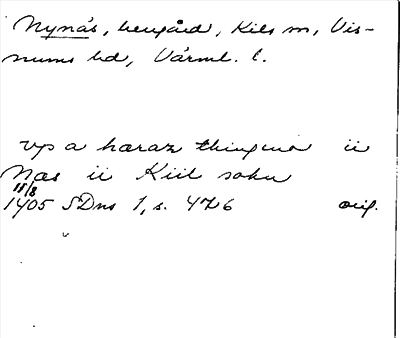 Nynäs, herrgård, Kils sn, Vis-
nums hd, Värml. l.
vp a haraz thingino ii
Nas ii Kiil sokn
11/8
1405 SDns 1, s. 476 orig.